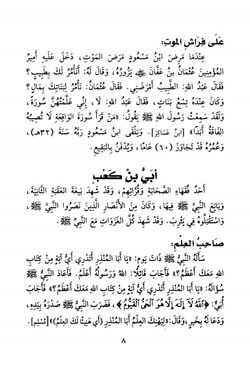 عَلَى فِرَاشِ الموتِ:
عِنْدَمَا مَرِضَ ابْنُ مَسْعُودٍ مَرَضَ المَوْتِ، دَخَلَ عَلَيْهِ أَمِيرُ
المُؤْمِنِينَ عُثْمَانُ بْنُ عَفَّانَ ﷺ يَزُورُهُ، وَقَالَ لَهُ: أَنَأْمُرُ لَكَ بِطَبِيبٍ؟
فَقَالَ عَبْدُ اللهِ: الطَّبِيبُ أَمْرَضَنِي. فَقَالَ عُثْمَانُ: أَنَأْمُرُ لِبَنَاتِكَ بِمَالٍ؟
وَكَانَ عِنْدَهُ تِسْعُ بَنَاتٍ، فَقَالَ عَبْدُ اللهِ: لَا، إِنِّي عَلَّمْتُهُنَّ سُورَةً،
وَلَقَدْ سَمِعْتُ رَسُولَ اللهِ ﷺ يَقُولُ: «مَنْ قَرَأَ سُورَةَ الوَاقِعَةِ لَا تُصِيبُهُ
الفَاقَةُ أَبَدًا» [ابْن عَسَاكِرَ]. وَتَلَقَّى ابْنُ مَسْعُودٍ رَبَّهُ سَنَةَ (٣٢هـ)،
وَعُمْرُهُ قَدْ تَجَاوَزَ (٦٠) عَامًا، وَيُدْفَنُ بِالبَقِيعِ.
أُبَيُّ بْنُ كَعْبٍ
أَحَدُ فُقَهَاءِ الصَّحَابَةِ وَقُرَّائِهِمْ، وَقَدْ شَهِدَ بَيْعَةَ العَقَبَةِ الثَّانِيَةَ،
وَبَايَعَ النَّبِيَّ ﷺ فِيهَا، وَكَانَ مِنَ الأَنْصَارِ الَّذِينَ نَصَرُوا النَّبِيَّ ﷺ
وَاسْتَقْبَلُوهُ فِي يَثْرِبَ. وَقَدْ شَهِدَ كُلَّ الغَزَوَاتِ مَعَ النَّبِيِّ ﷺ.
صَاحِبُ العِلْمِ:
سَأَلَهُ النَّبِيُّ ﷺ ذَاتَ يَوْمٍ: «يَا أَبَا المُنْذِرِ أَتَدْرِي أَيُّ آيَةٍ مِنْ كِتَابِ
اللهِ مَعَكَ أَعْظَمُ؟» فَأَجَابَ قَائِلًا: اللهُ وَرَسُولُهُ أَعْلَمُ. فَأَعَادَ النَّبِيُّ ﷺ
سُؤَالَهُ: «يَا أَبَا المُنْذِرِ أَتَدْرِي أَيُّ آيَةٍ مِنْ كِتَابِ اللهِ مَعَكَ أَعْظَمُ؟» فَأَجَابَ
أُبَيُّ: ﴿اللَّهُ لَا إِلَهَ إِلَّا هُوَ الْحَيُّ الْقَيُّومُ﴾، فَضَرَبَ النَّبِيُّ ﷺ صَدْرَهُ بِيَدِهِ،
وَدَعَا لَهُ بِخَيْرٍ، وَقَالَ: «لِيَهْنِكَ العِلْمُ أَبَا المُنْذِرِ (أَيْ هَنِيئًا لَكَ العِلْمُ)» [مُسْلِم].
٨